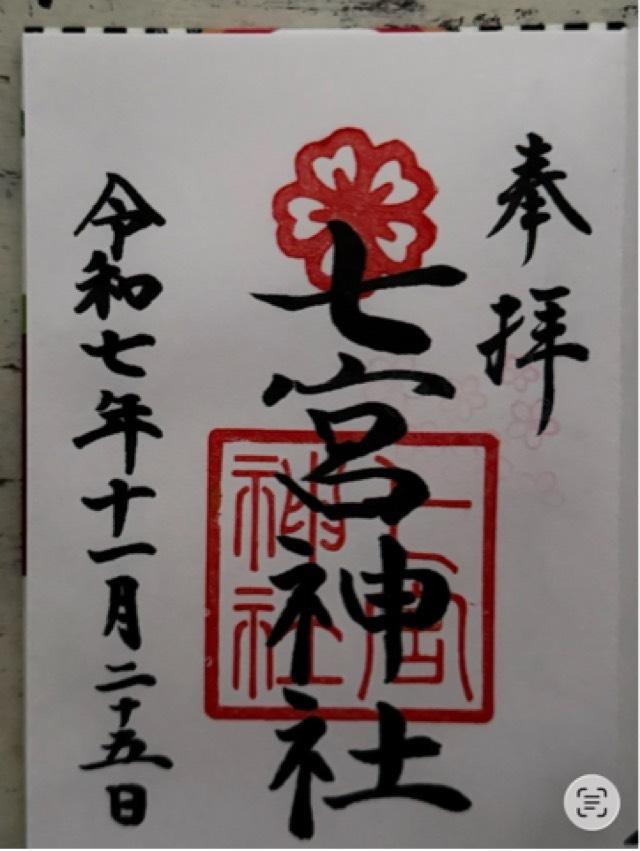 奉拝
七宮神社
七宮神社
令和七年十一月二十五日